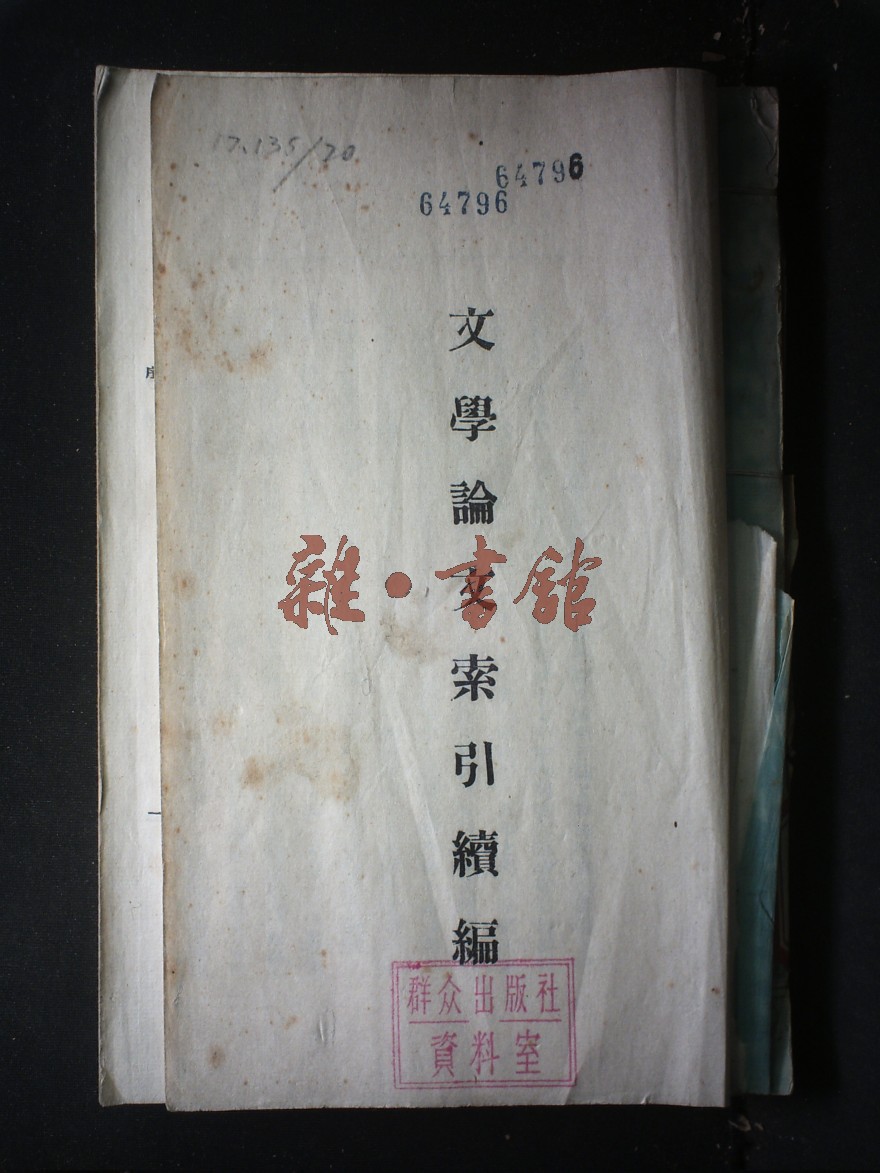 17.135/70
64796
64796
文學論文索引續編
雜·書館
序
一
群众出版社
資料室